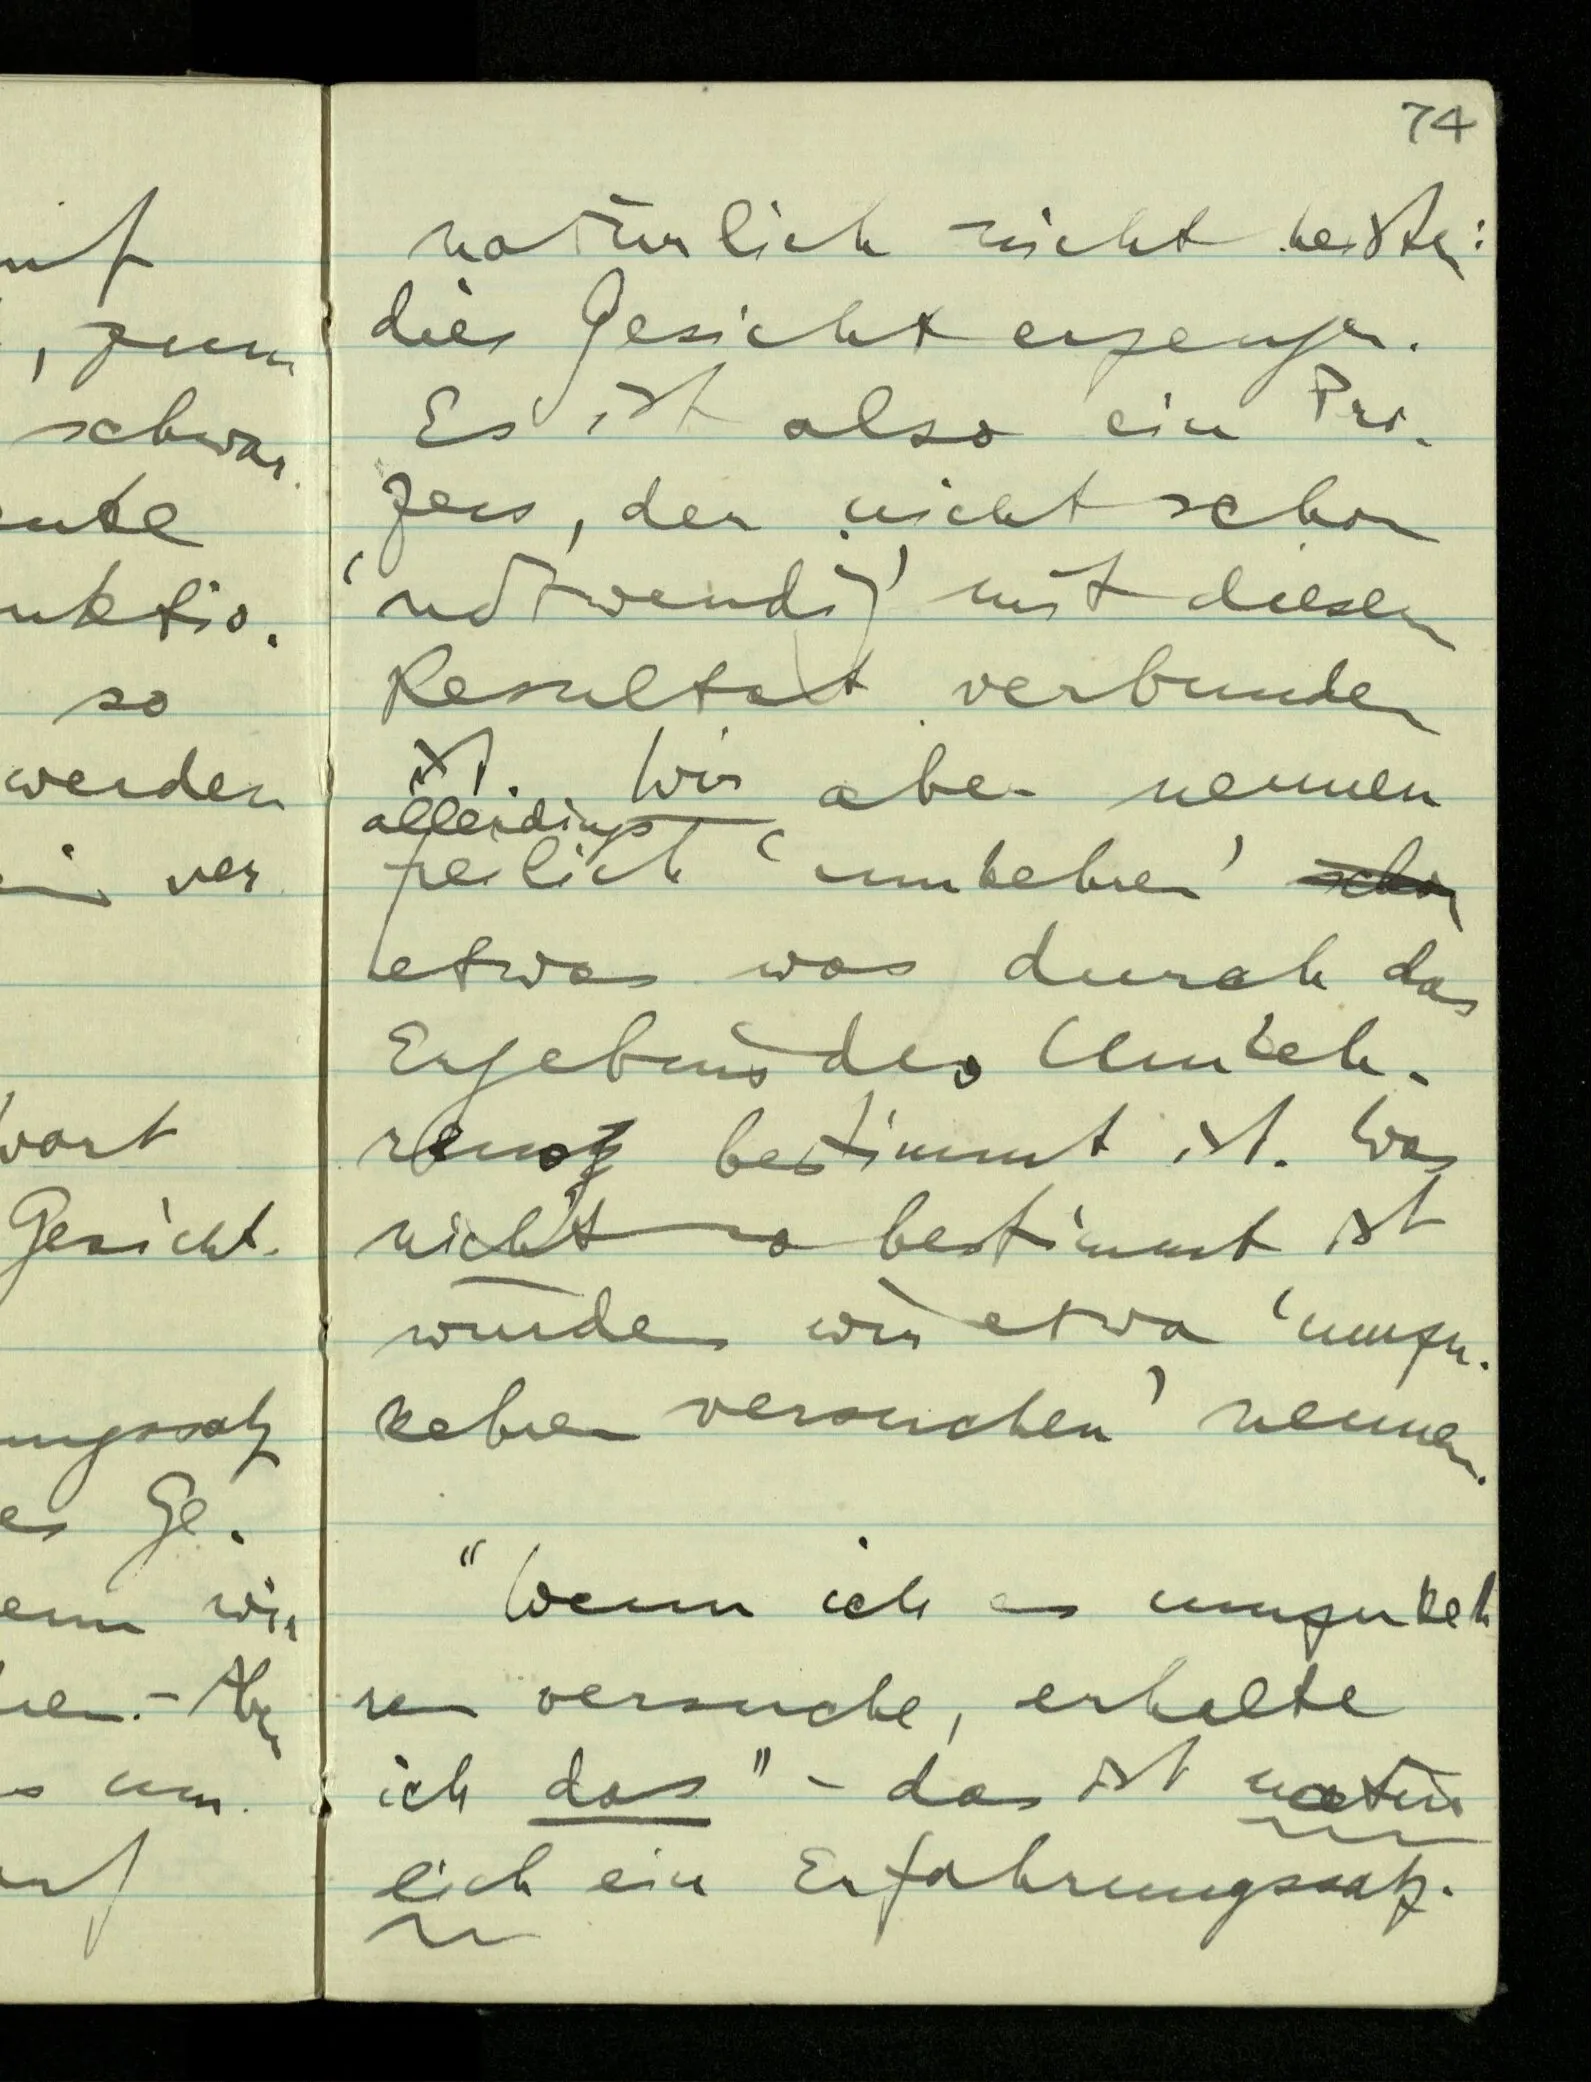 74
natürlich nicht heißen:
dies Gesicht erzeugen.
Es ist also ein Pro-
zess, der nicht schon
'notwendig' mit diesem
Resultat verbunden
ist. Wir aber nennen
allerdings
freilich 'umkehren' schon
etwas was durch das
Ergebnis des Umkeh-
rens bestimmt ist. Was
nicht so bestimmt ist
würden wir etwa 'umzu-
kehren versuchen' nennen.
"Wenn ich es umzukeh
ren versuche, erhalte
ich das" – das ist natür
lich ein Erfahrungssatz.
, zum
schwar
so
werden
ver
Gesicht.
es Ge-
wir